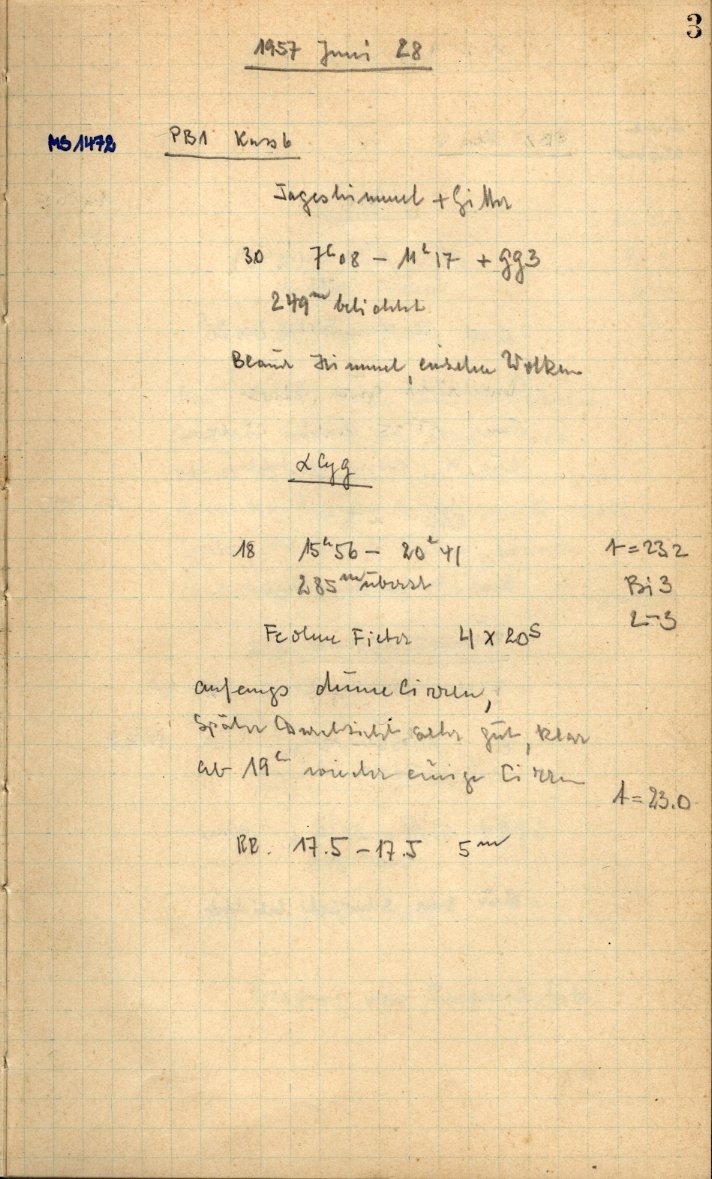 3
1957 Juni 28
MS1472 PB1 Kass b
Tageshimmel + Gitter
30 7h08 – 11h17 + GG3
249m belichtet
Blauer Himmel, einzelne Wolken
α Cyg
18 15h56 – 20h41 t=23.2
285m überst Bi 3
2-3
Fe ohne Filter 4 x 20s
anfangs dünne Cirren,
Später Durchsicht sehr gut, klar
ab 19h wieder einige Cirren
t=23.0
RR. 17.5 – 17.5 5m